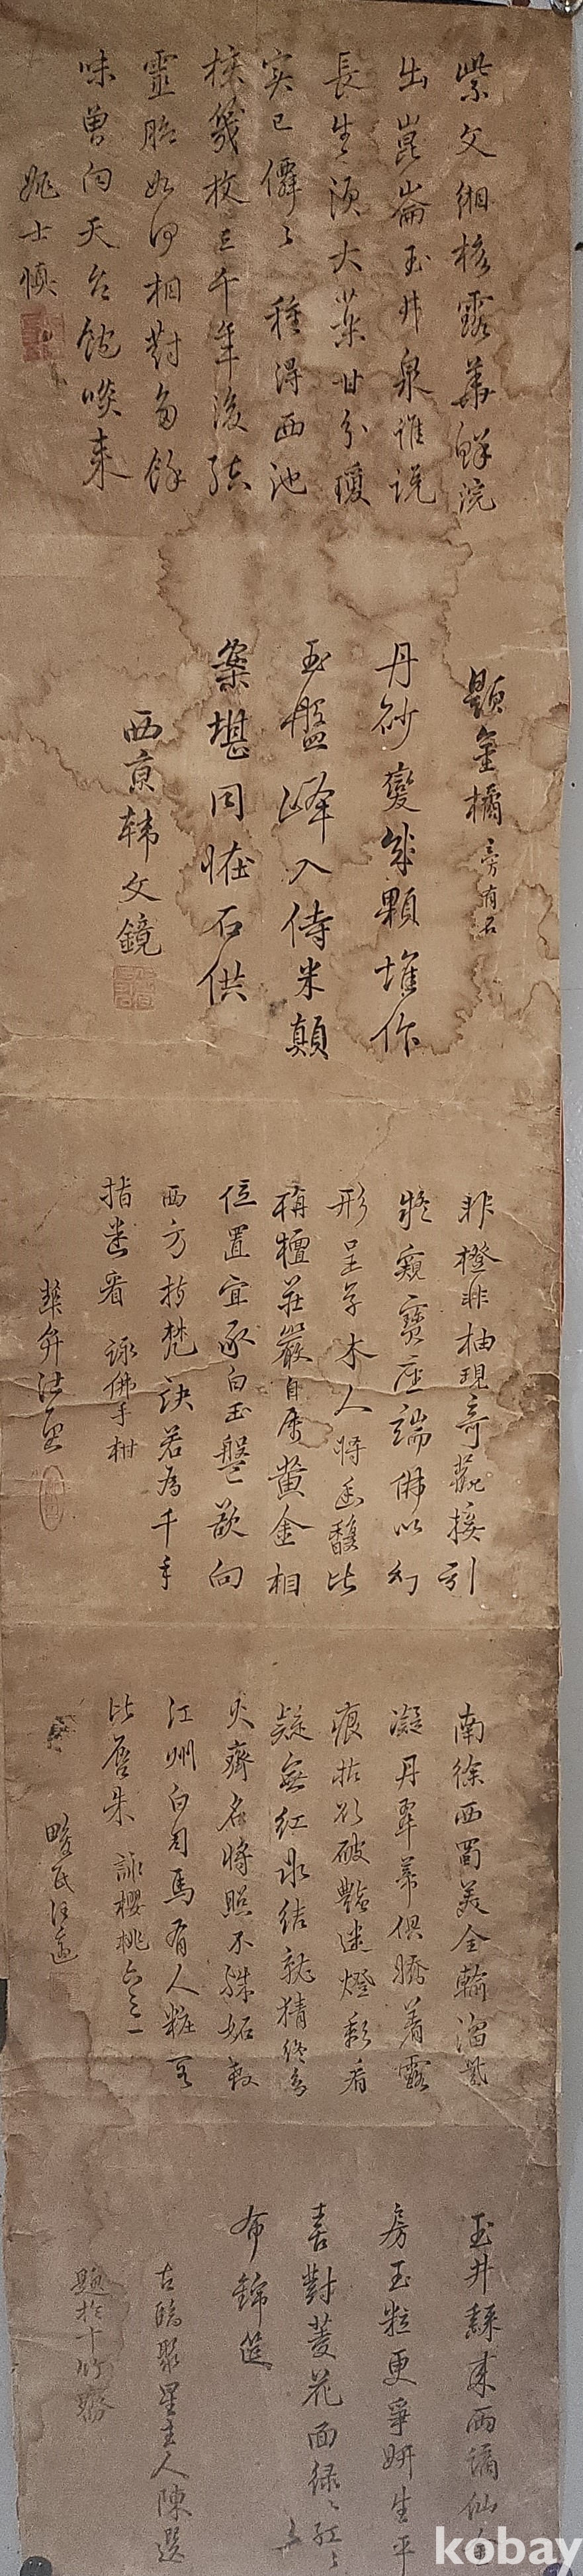 紫文緗核露華鮮浣
出崑崙玉井泉誰說
長生須大藥甘分瓊
實已僊々種得西池
核幾枚三千年後結
靈胎如何相對多餘
味曾向天台飽啖來
姚士慎
題金橘旁有石
丹砂變幾顆堆作
玉盤峰入侍米顛
案堪同怪石供
西京韓文鏡
非橙非柚現奇葩接引
疑窺寶座端佛以幻
形呈草木人將幽馥比
栴檀莊嚴自屬黃金相
位置宜承白玉盤欲向
西方授梵訣若為千手
指迷看 詠佛手柑
南徐西蜀美全輸溜氣
凝丹翠葉俱腃着露
痕拈欲破豔迷燈影看
疑無紅冰結就猜終
火齊名將照不殊妬殺
江州白司馬有人粧
比唇朱 詠櫻桃
玉井移來兩謫仙
房玉粒更爭妍生平
喜對菱花面綠々紅々
布錦筵
聚星主人陳選
題於十竹齋
kobay